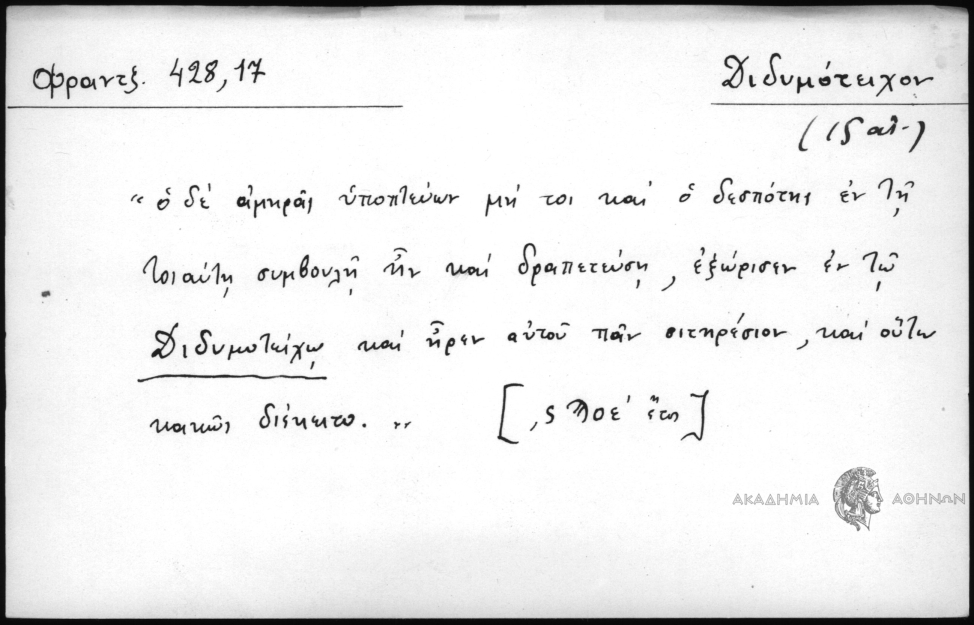 Φραντζ. 428,17
Διδυμότειχον
(Ις αλ.)
" ὁ δέ ἀμηρᾶς ὑποπτεύων μή τοι καί ὁ δεσπότης ἐν τῇ
τοιαύτῃ συμβουλῇ ἦν καί δραπετεύσῃ, ἐξώρισεν ἐν τῷ
Διδυμοτείχῳ καί ἦρεν αὐτοῦ πᾶν σιτηρέσιον, καί οὕτω
κακῶς διέκειτο. "
[͵ϛ Ϡοε΄ ἔτος]
ΑΚΑΔΗΜΙΑ ΑΘΗΝΩΝ